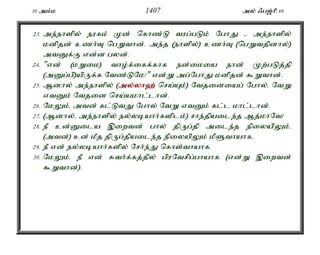 30 அம்ம 1407 அல் ஃபஜ்ர் 89
23. அந்நாளில் நரகம் முன் கொண்டு வரப்படும் போது - அந்நாளில்
மனிதன் உணர்வு பெறுவான். அந்த (நாளில்) உணர்வு (பெறுவதினால்)
அவனுக்கு என்ன பலன்.
24. "என் (மறுமை) வாழ்க்கைக்காக நன்மையை நான் முற்படுத்தி
(அனுப்பி)யிருக்க வேண்டுமே!" என்று அப்போது மனிதன் கூறுவான்.
25. ஆனால் அந்நாளில் (அல்லாஹ் செய்யும்) வேதனையைப் போல், வேறு
எவனும் வேதனை செய்யமாட்டான்.
26. மேலும், அவன் கட்டுவது போல் வேறு எவனும் கட்ட மாட்டான்.
27. (ஆனால், அந்நாளில் நல்லடியார்களிடம்) சாந்தியடைந்த ஆத்மாவே!
28. நீ உன்னுடைய இறைவன் பால் திருப்தி அடைந்த நிலையிலும்,
(அவன்) உன் மீத திருப்தியடைந்த நிலையிலும் மீளுவாயாக.
29. நீ என் நல்லடியார்களில் சேர்ந்து கொள்வாயாக.
30. மேலும், நீ என் சுவர்க்கத்தில் பிரவேசிப்பாயாக (என்று இறைவன்
கூறுவான்).